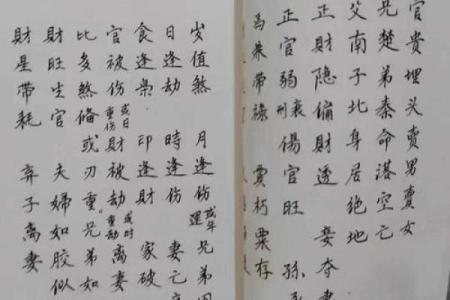 官贵埋头賣男賣女
兄楚弟秦命落空亡
父南子北身居绝地
正財隐偏財透 妾夺妻
正官弱衰刑伤官旺 孙
帶禄 貫朽粟存
岁值煞 月逢伤 兄弟
日逢劫 時逢伤 妻亡
食逢枭 印逢財 家破
官被伤或日重伤財被劫或时重劫离妻
比多煞偹或刃重兄弟如
財旺生官 夫婦如胶似
財星帶耗 弃子离妻